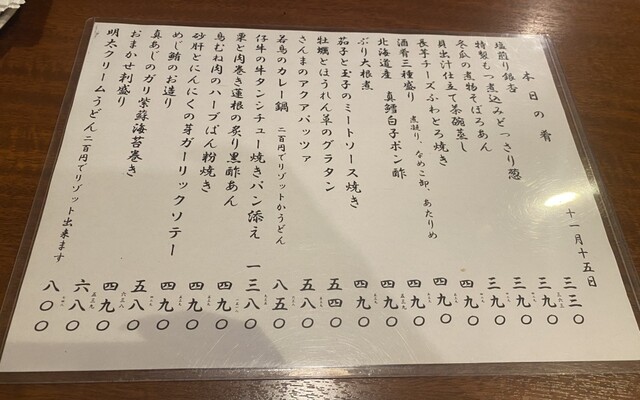 本日の肴
十一月十五日
塩煎り銀杏 三三〇
特製もつ煮込みどっさり葱 三九〇
冬瓜の煮物そぼろあん 三九〇
貝出汁仕立て茶碗蒸し 三九〇
長芋チーズふわとろ焼き 四九〇
酒肴三種盛り 煮凝り、なめこ卸、あたりめ 四九〇
北海道産 真鱈白子ポン酢 四九〇
ぶり大根煮 四九〇
茄子と玉子のミートソース焼き 四九〇
牡蠣とほうれん草のグラタン 五四〇
さんまのアクアパッツァ 五八〇
若鳥のカレー鍋 二百円でリゾットかうどん 八五〇
仔牛の牛タンシチュー焼きパン添え 一三八〇
栗と肉巻き蓮根の炙り黒酢あん 四九〇
鳥むね肉のハーブぱん粉焼き 四九〇
砂肝とにんにくの芽ガーリックソテー 四九〇
めじ鮪のお造り 五八〇
真あじのガリ紫蘇海苔巻き 四九〇
おまかせ刺盛り 六八〇
明太クリームうどん 二百円でリゾット出来ます 八〇〇